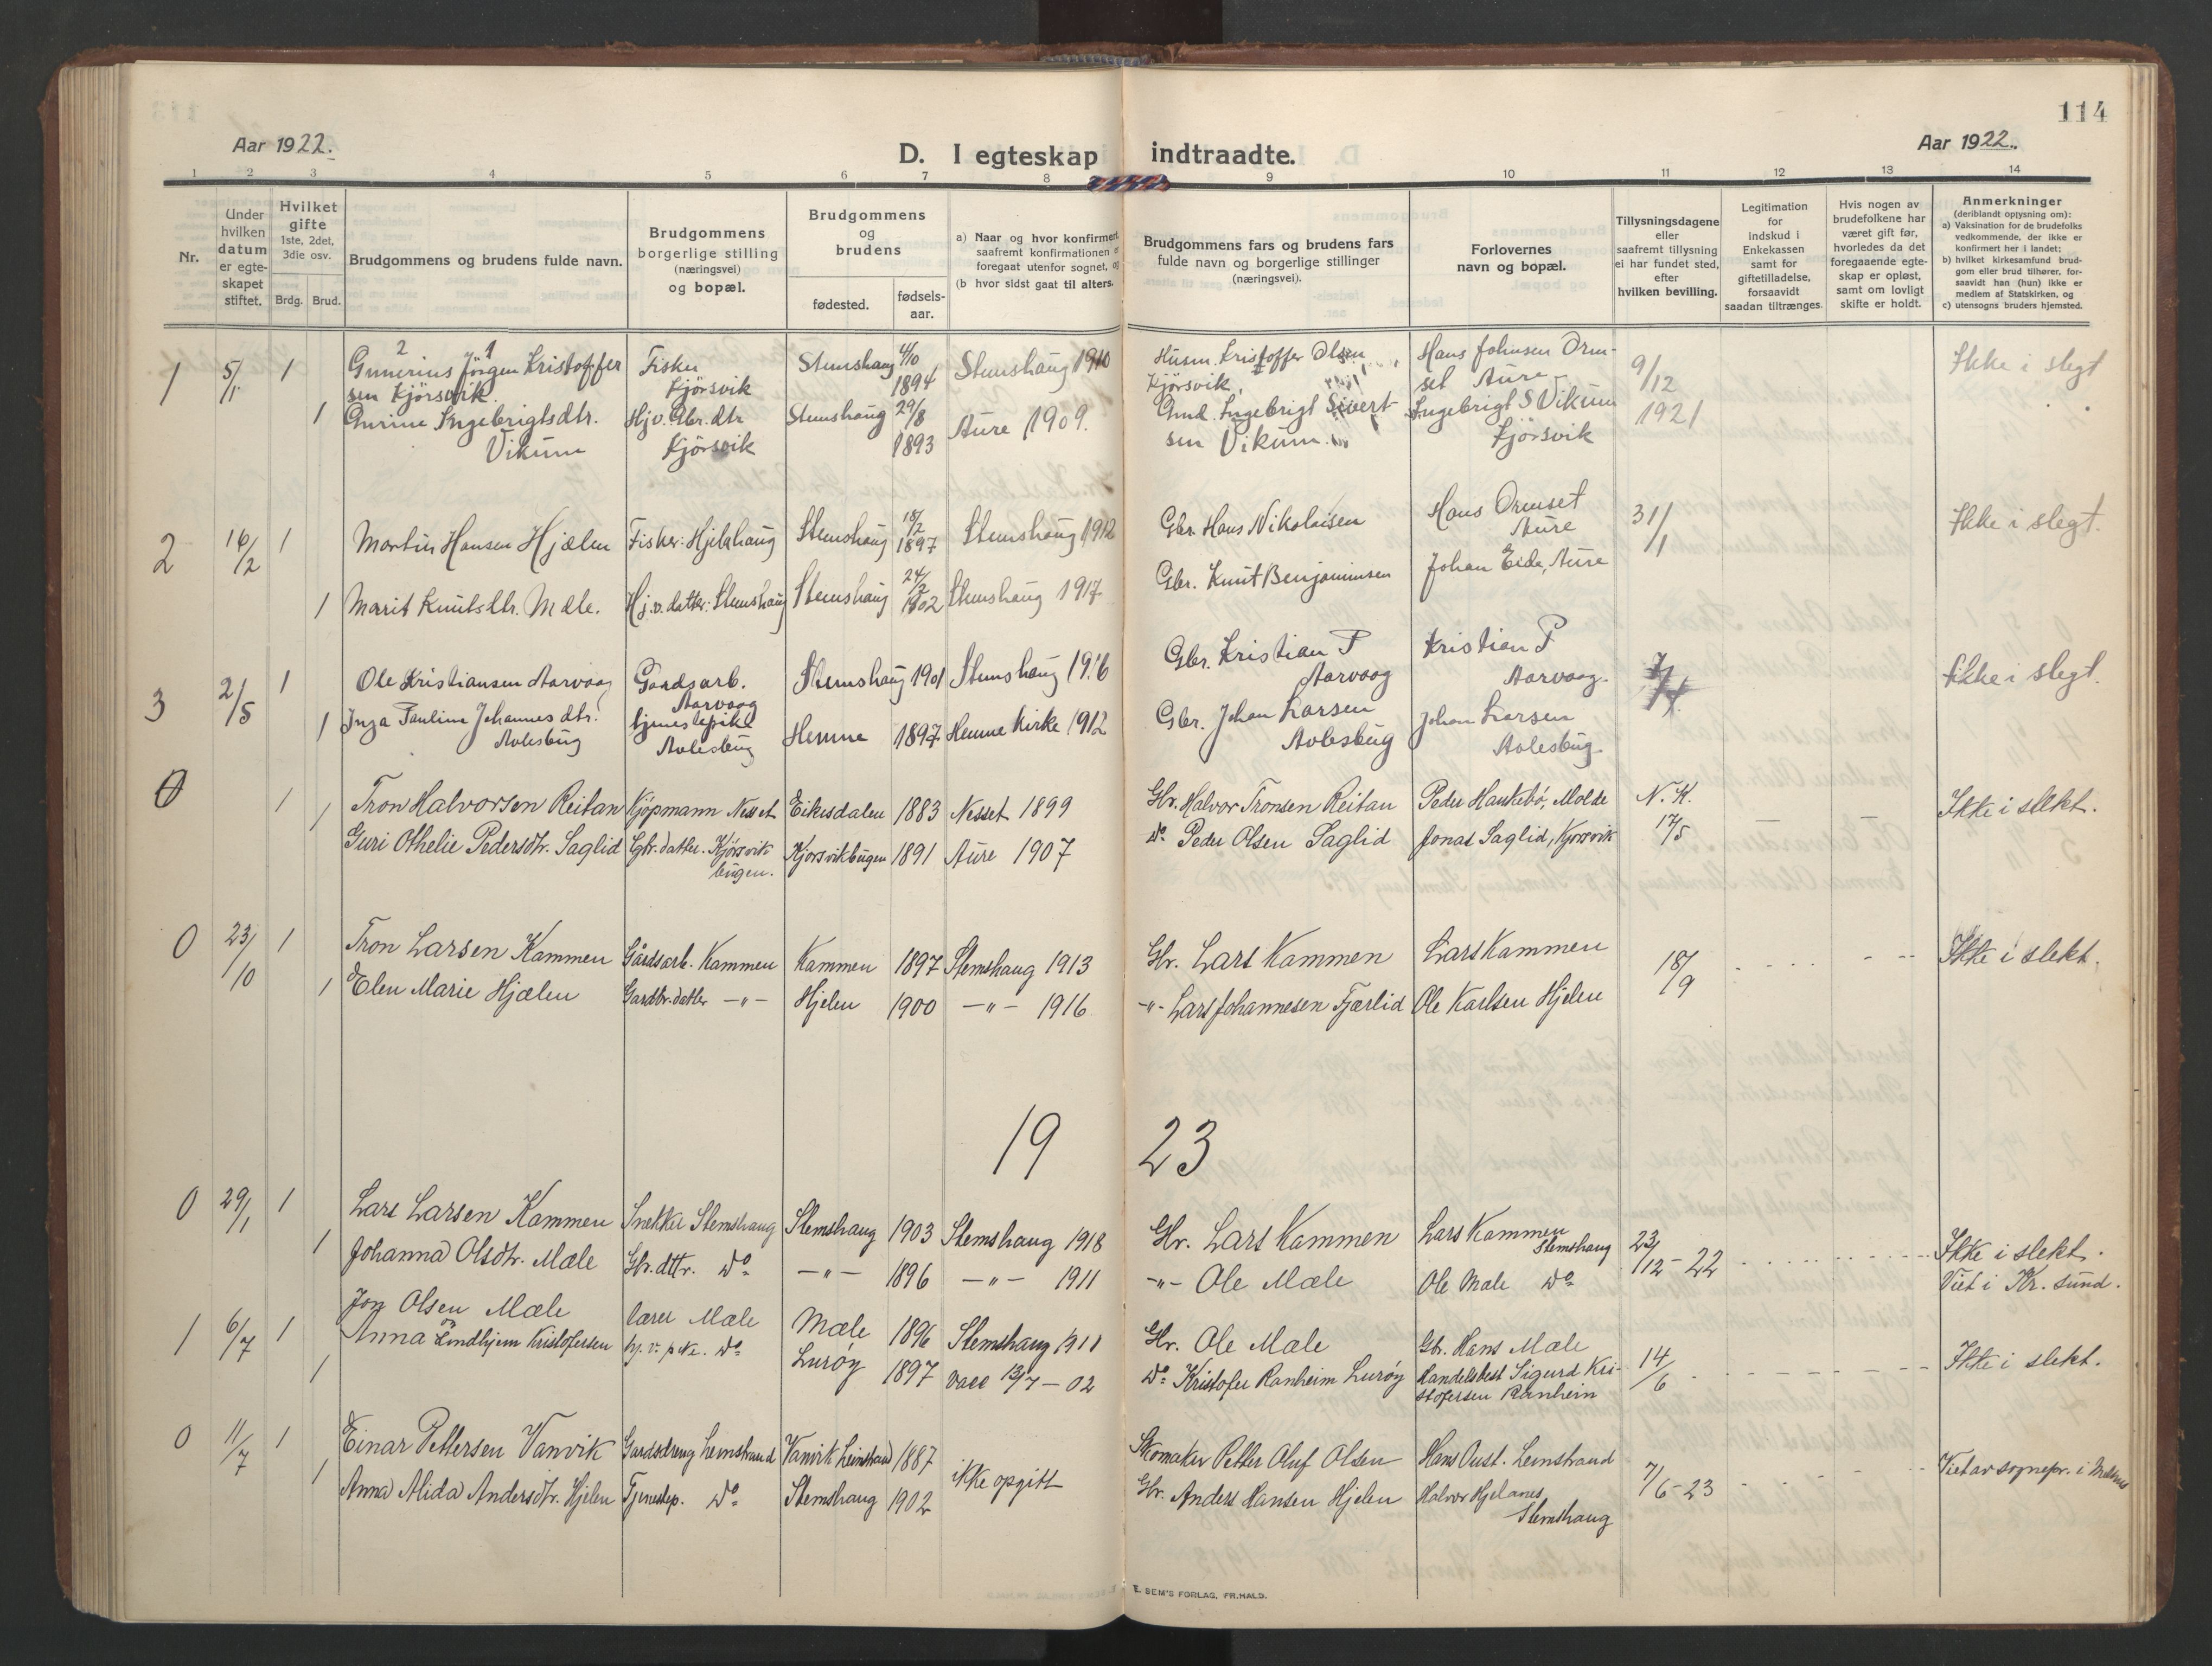 114
Aar 1922.
D. I egteskap indtraadte.
Aar 1922.
1 2 3 4 5 6 7 8 9 10 11 12 13 14
Nr.
Under
hvilken
datum
er egte-
skapet
stiftet.
Hvilket
gifte
1ste, 2det,
3die osv.
Brdg. Brud.
Brudgommens og brudens fulde navn.
Brudgommens
borgerlige stilling
(næringsvei)
og bopæl.
Brudgommens
og
brudens
fødested.
fødsels-
aar.
a) Naar og hvor konfirmert
saafremt konfirmationen e
foregaat utenfor sognet, o
(b hvor sidst gaat til alters.
Brudgommens fars og brudens fars
fulde navn og borgerlige stillinger
(næringsvei).
Forlovernes
navn og bopæl.
Tillysningsdagene
eller
saafremt tillysning
ei har fundet sted,
efter
hvilken bevilling.
Legitimation
for
indskud i
Enkekassen
samt for
giftetilladelse,
forsaavidt
saadan tiltrænges.
Hvis nogen av
brudefolkene har
været gift før,
hvorledes da det
foregaaende egte-
skap er opløst,
samt om lovligt
skifte er holdt.
Anmerkninger
(deriblandt oplysning om):
a) Vaksination for de brudefolks
vedkommende, der ikke er
konfirmert her i landet;
b) hvilket kirkesamfund brud-
gom eller brud tilhører, for-
saavidt han (hun) ikke er
medlem af Statskirken, og
c) utensogns bruders hjemsted.
2 1
1 5/1 1 Gunerius Jörgen Kristoffer Fisker Stemshaug 4/10 Stemshaug 1910 Husm. Kristoffer Olsen Hans Johnsen Orm- 9/12 Ikke i slegt
sen Kjörsvik. Kjørsvik 1894 Kjörsvik, set Aure
1 Gurine Ingebrigtsdtr. Hj.v. Gbr. dtr Stemshaug 29/8 Aure 1909. Gmd. Ingebrigt Sivert- Ingebrigt S Vikum 1921
Vikum Kjörsvik 1893 sen Vikum. Kjörsvik
2 16/2 1 Martin Hansen Hjælen Fisker: Hjelahaug Stemshaug 18/2 1897 Stemshaug 1912 Gbr. Hans Nikolaisen Hans Ormset Aure 31/1 Ikke i slegt.
1 Marit Knutsdtr. Mæle. Hj.v. datter: Stemshaug Stemshaug 24/2 1902 Stemshaug 1917 Gbr. Knut Benjaminsen Johan Eide, Aure
3 2/5 1 Ole Kristiansen Aarvaag Gaardsarb. Stemshaug 1901 Stemshaug 1916 Gbr. Kristian P Kristian P Ikke i slegt.
Aarvaag Aarvaag Aarvaag.
1 Inga Pauline Johannesdtr. tjenestepike Hemne 1897 Hemne kirke 1912 Gbr. Johan Larsen Johan Larsen
Avlesbug Avlesbug Avlesbug Avlesbug.
0 1 Tron Halvorsen Reitan Kjøpmann Nesset Eikisdalen 1883 Nesset 1899 Gbr. Halvor Tronsen Reitan Peder Haukebø, Molde N. K. — — Ikke i slekt.
1 Guri Othelie Pedersdtr. Saglid Gbr. datter. Kjörsvik Kjorsvikbugen 1891 Aure 1907 Do Peder Olsen Saglid Jonas Saglid, Kjorsvik 17/5
bugen.
0 23/10 1 Tron Larsen Kammen Gårdsarb. Kammen Kammen 1897 Stemshaug 1913 Gbr. Lars Kammen Lars Kammen 18/9 Ikke i slekt.
1 Elen Marie Hjælen Gardbr. datter —"— Hjelen 1900 —"— 1916 -"- Lars Johannesen Fjærlid Ole Karlsen Hjelen
19 23
0 29/1 1 Lars Larsen Kammen Snekker Stemshaug Stemshaug 1903 Stemshaug 1918 Gbr. Lars Kammen Lars Kammen Stemshaug 23/12 – 22 Ikke i slekt.
1 Johanna Olsdtr. Mæle Gbr. dttr. Do —"— 1896 —"— 1911 -"- Ole Mæle Ole Mæle Do Viet i Kr. sund.
1 6/7 1 Jon Olsen Mæle lærer Mæle Mæle 1896 Stemshaug 1911 Gbr. Ole Mæle Gb. Hans Mæle 14/6 Ikke i slekt.
1 Anna Lindhjem Kristofersen hj. v. pike. Do Lurøy 1897 vacc 13/7 – 02 Do Kristofer Ranheim Lurøy Handelsbest Sigurd Kri-
stofersen Ranheim
0 11/7 1 Einar Pettersen Vanvik Gardsdreng Leinstrand Vanvik Leinstrand 1887 ikke opgitt Skomaker Petter Oluf Olsen Hans Oust. Leinstrand 7/6 – 23 Viet av sognepr. i Melhus
1 Anna Alida Andersdtr. Hjelen Tjenestep. Do Stemshaug 1902 Gbr. Anders Hansen Hjelen Halvor Hjelanes,
Stemshaug
E. SEM'S FORLAG, FR.HALD.